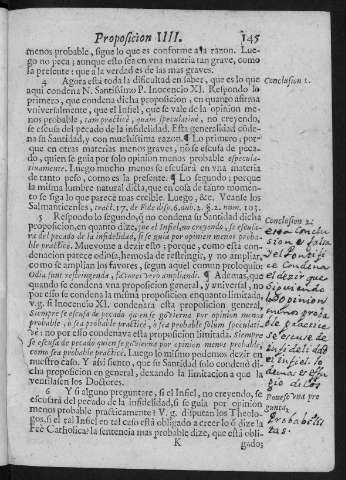 Proposicion IIII.
145
menos probable, sigue lo que es conforme a la razon. Lue-
go no peca; aunque esto sea en vna materia tan grave, como
la presente: que a la verdad es de las mas graves.
4 Agora està toda la dificultad en saber, que es lo que
aqui condena N. Santissimo P. Inocencio XI. Respondo lo
primero, que condena dicha proposicion, en quanto afirma
vniversalmente, que el Infiel, que se vale de la opinion me-
nos probable, tam practicè, quam speculativè, no creyendo,
se escusa del pecado de la infidelidad. Esta generalidad côde-
na su Santidad, y con muchissima razon. ¶ Lo primero; por-
que en otras materias menos graves, no se escusa de peca-
do, quien se guia por solo opinion menos probable especula-
tivamente. Luego mucho menos se escusarà en vna materia
de tanto peso, como es la presente. ¶ Lo segundo: porque
la misma lumbre natural dicta, que en cosa de tanto momen-
to se siga lo que parece mas creible. Luego, &c. Veanse los
Salmanticenses, tract. 17. de Fide disp. 6. dub. 2. §. 2. num. 103.
5 Respondo lo segundo, q̃ no condena su Santidad dicha
proposicion, en quanto dize, que el Infiel, no creyendo, se escusa-
ra del pecado de la infidelidad, si se guia por opinion menos proba-
ble practicè. Muevome a dezir esto; porque, como esta con-
denacion parece odiosa, hemosla de restringir, y no ampliar,
como se amplian los favores, segun aquel comun proloquio:
Odia sunt restringenda, favores verò ampliandi. ¶ Ademas, que
quando se condena vna proposicion general, y vniversal, no
por esso se condena la misma proposicion enquanto limitada,
v. g. si Inocencio XI. condenàra esta proposicion general,
Siempre se escusa de pecado quien se govierna por opinion menos
probable, ò sea probable practicè, ò sea probable solùm speculati-
vè: no por esso condenava esta proposicion limitada, siempre
se escusa de pecado quien se govierna por opinion menos probable,
sea probable practicè. Luego lo mismo podemos dezir en
nuestro caso. Y assi siento, que su Santidad solo condenò di-
cha proposicion en general, dexando la limitacion a que la
ventilassen los Doctores.
6 Y si alguno preguntare, si el Infiel, no creyendo, se
escusarà del pecado de la infidelidad, si se guia por opinion
menos probable practicamente? V. g. disputan los Theolo-
gos, si el tal Infiel en tal caso està obligado a creer lo q̃ dize la
Feè Catholica? la sentencia mas probable dize, que està obli-
K
gado;
Conclusion 1.
Conclusion 2.
esta conclu
sion es falsa
el Pontifi
ce condena
el dezir que
siguiendo
la opinion
meno proba
ble practice
se escuse de
infidelidad
el infiel
Ponese vna pre
gunta.
Probabilis
tas.